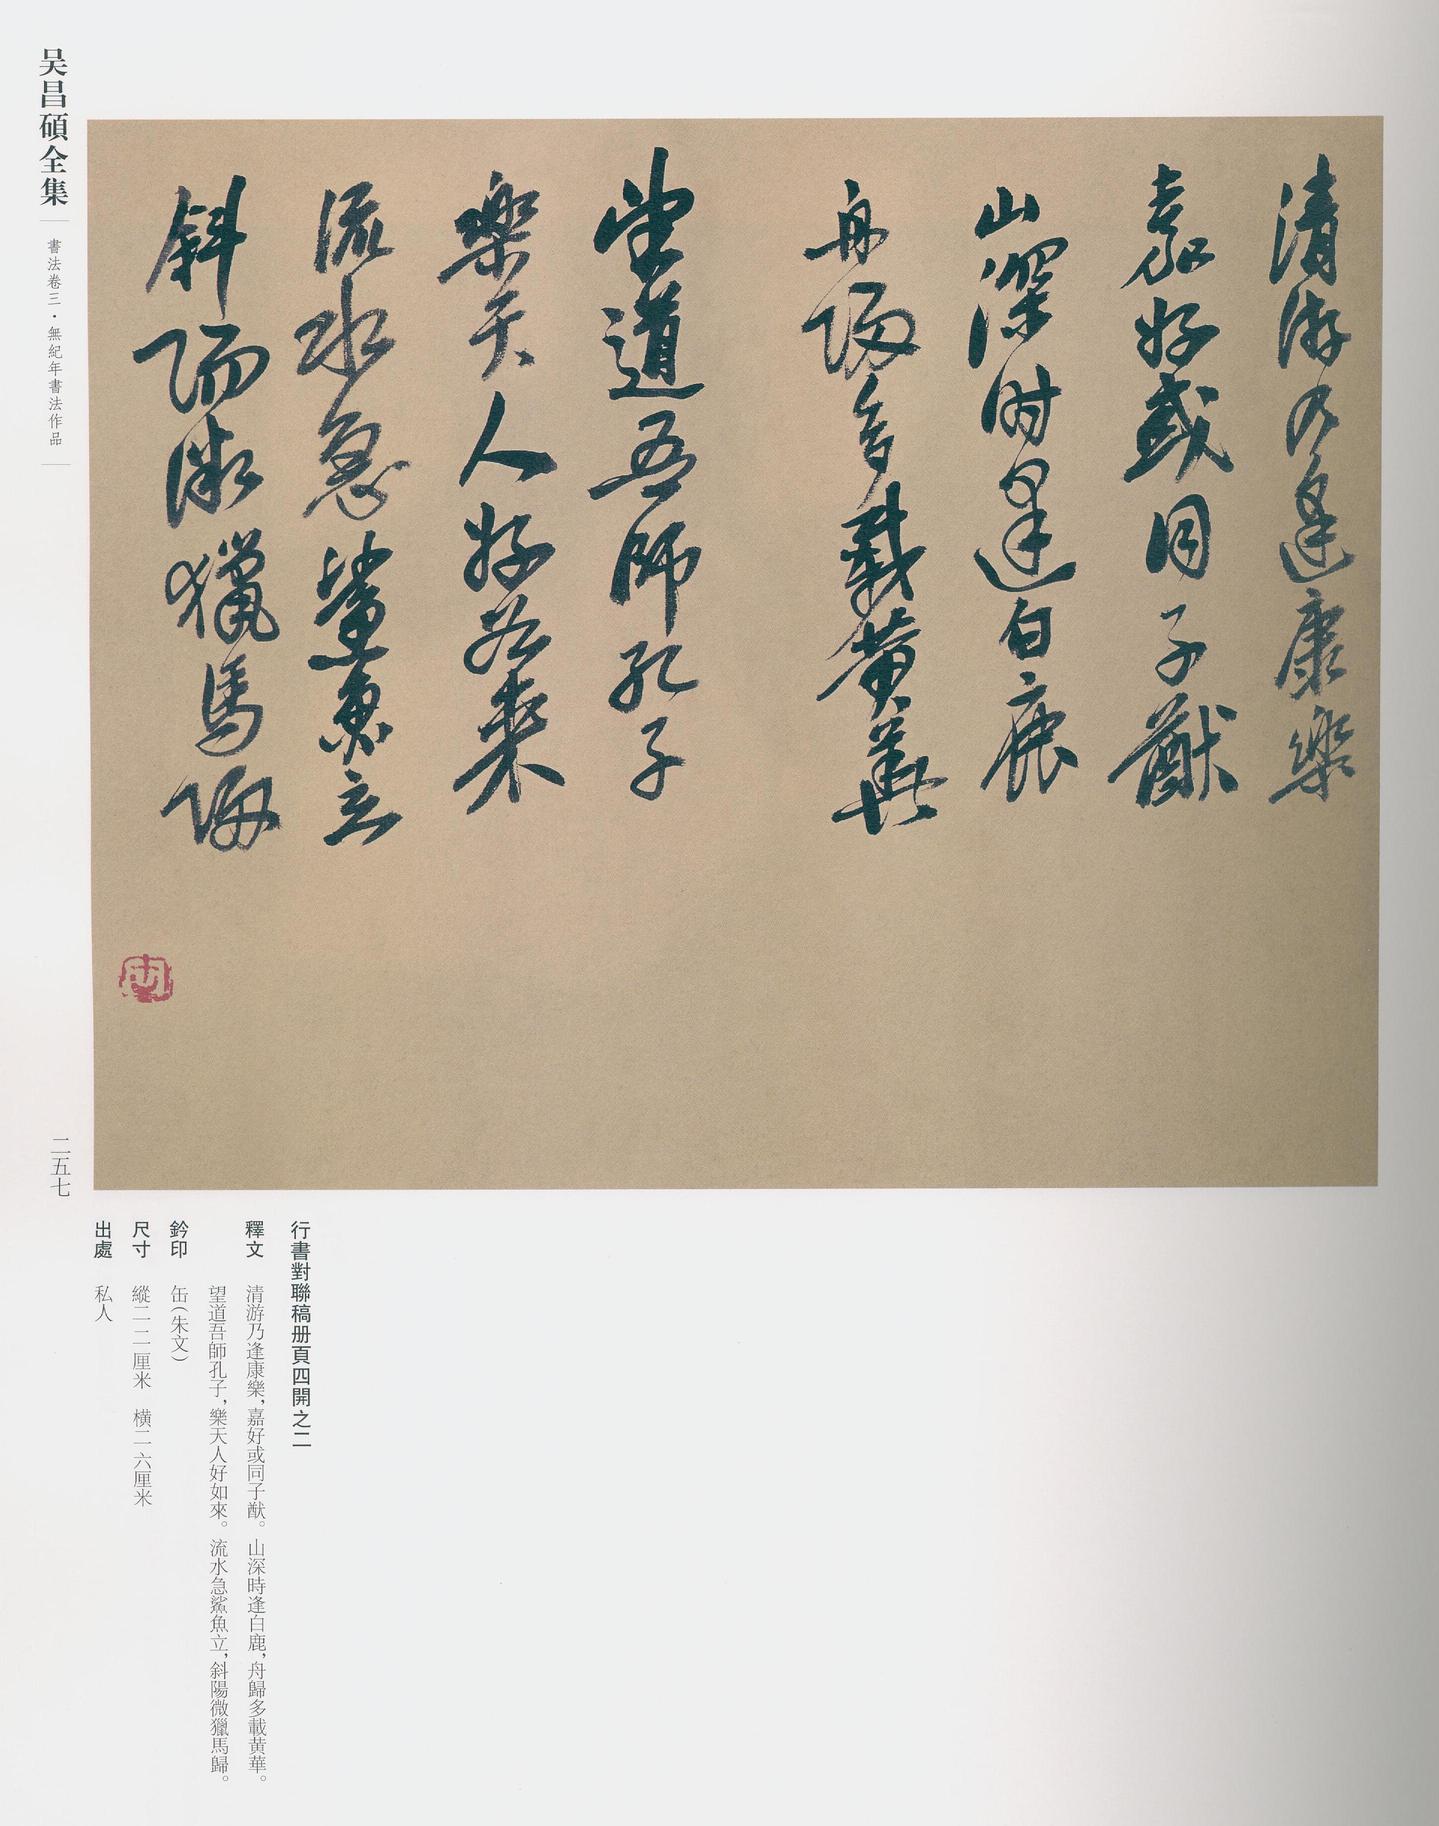 清游乃逢康樂
嘉好或同子猷
山深時逢白鹿
舟歸多載黄華
望道吾師孔子
樂天人好如來
流水急鯊魚立
斜陽微獵馬歸
缶
吴昌碩全集
書法卷三·無紀年書法作品
二五七
行書對聯稿册頁四開之二
釋文 清游乃逢康樂，嘉好或同子猷。山深時逢白鹿，舟歸多載黄華。
望道吾師孔子，樂天人好如來。流水急鯊魚立，斜陽微獵馬歸。
鈐印 缶（朱文）
尺寸 縱二二厘米 横二六厘米
出處 私人